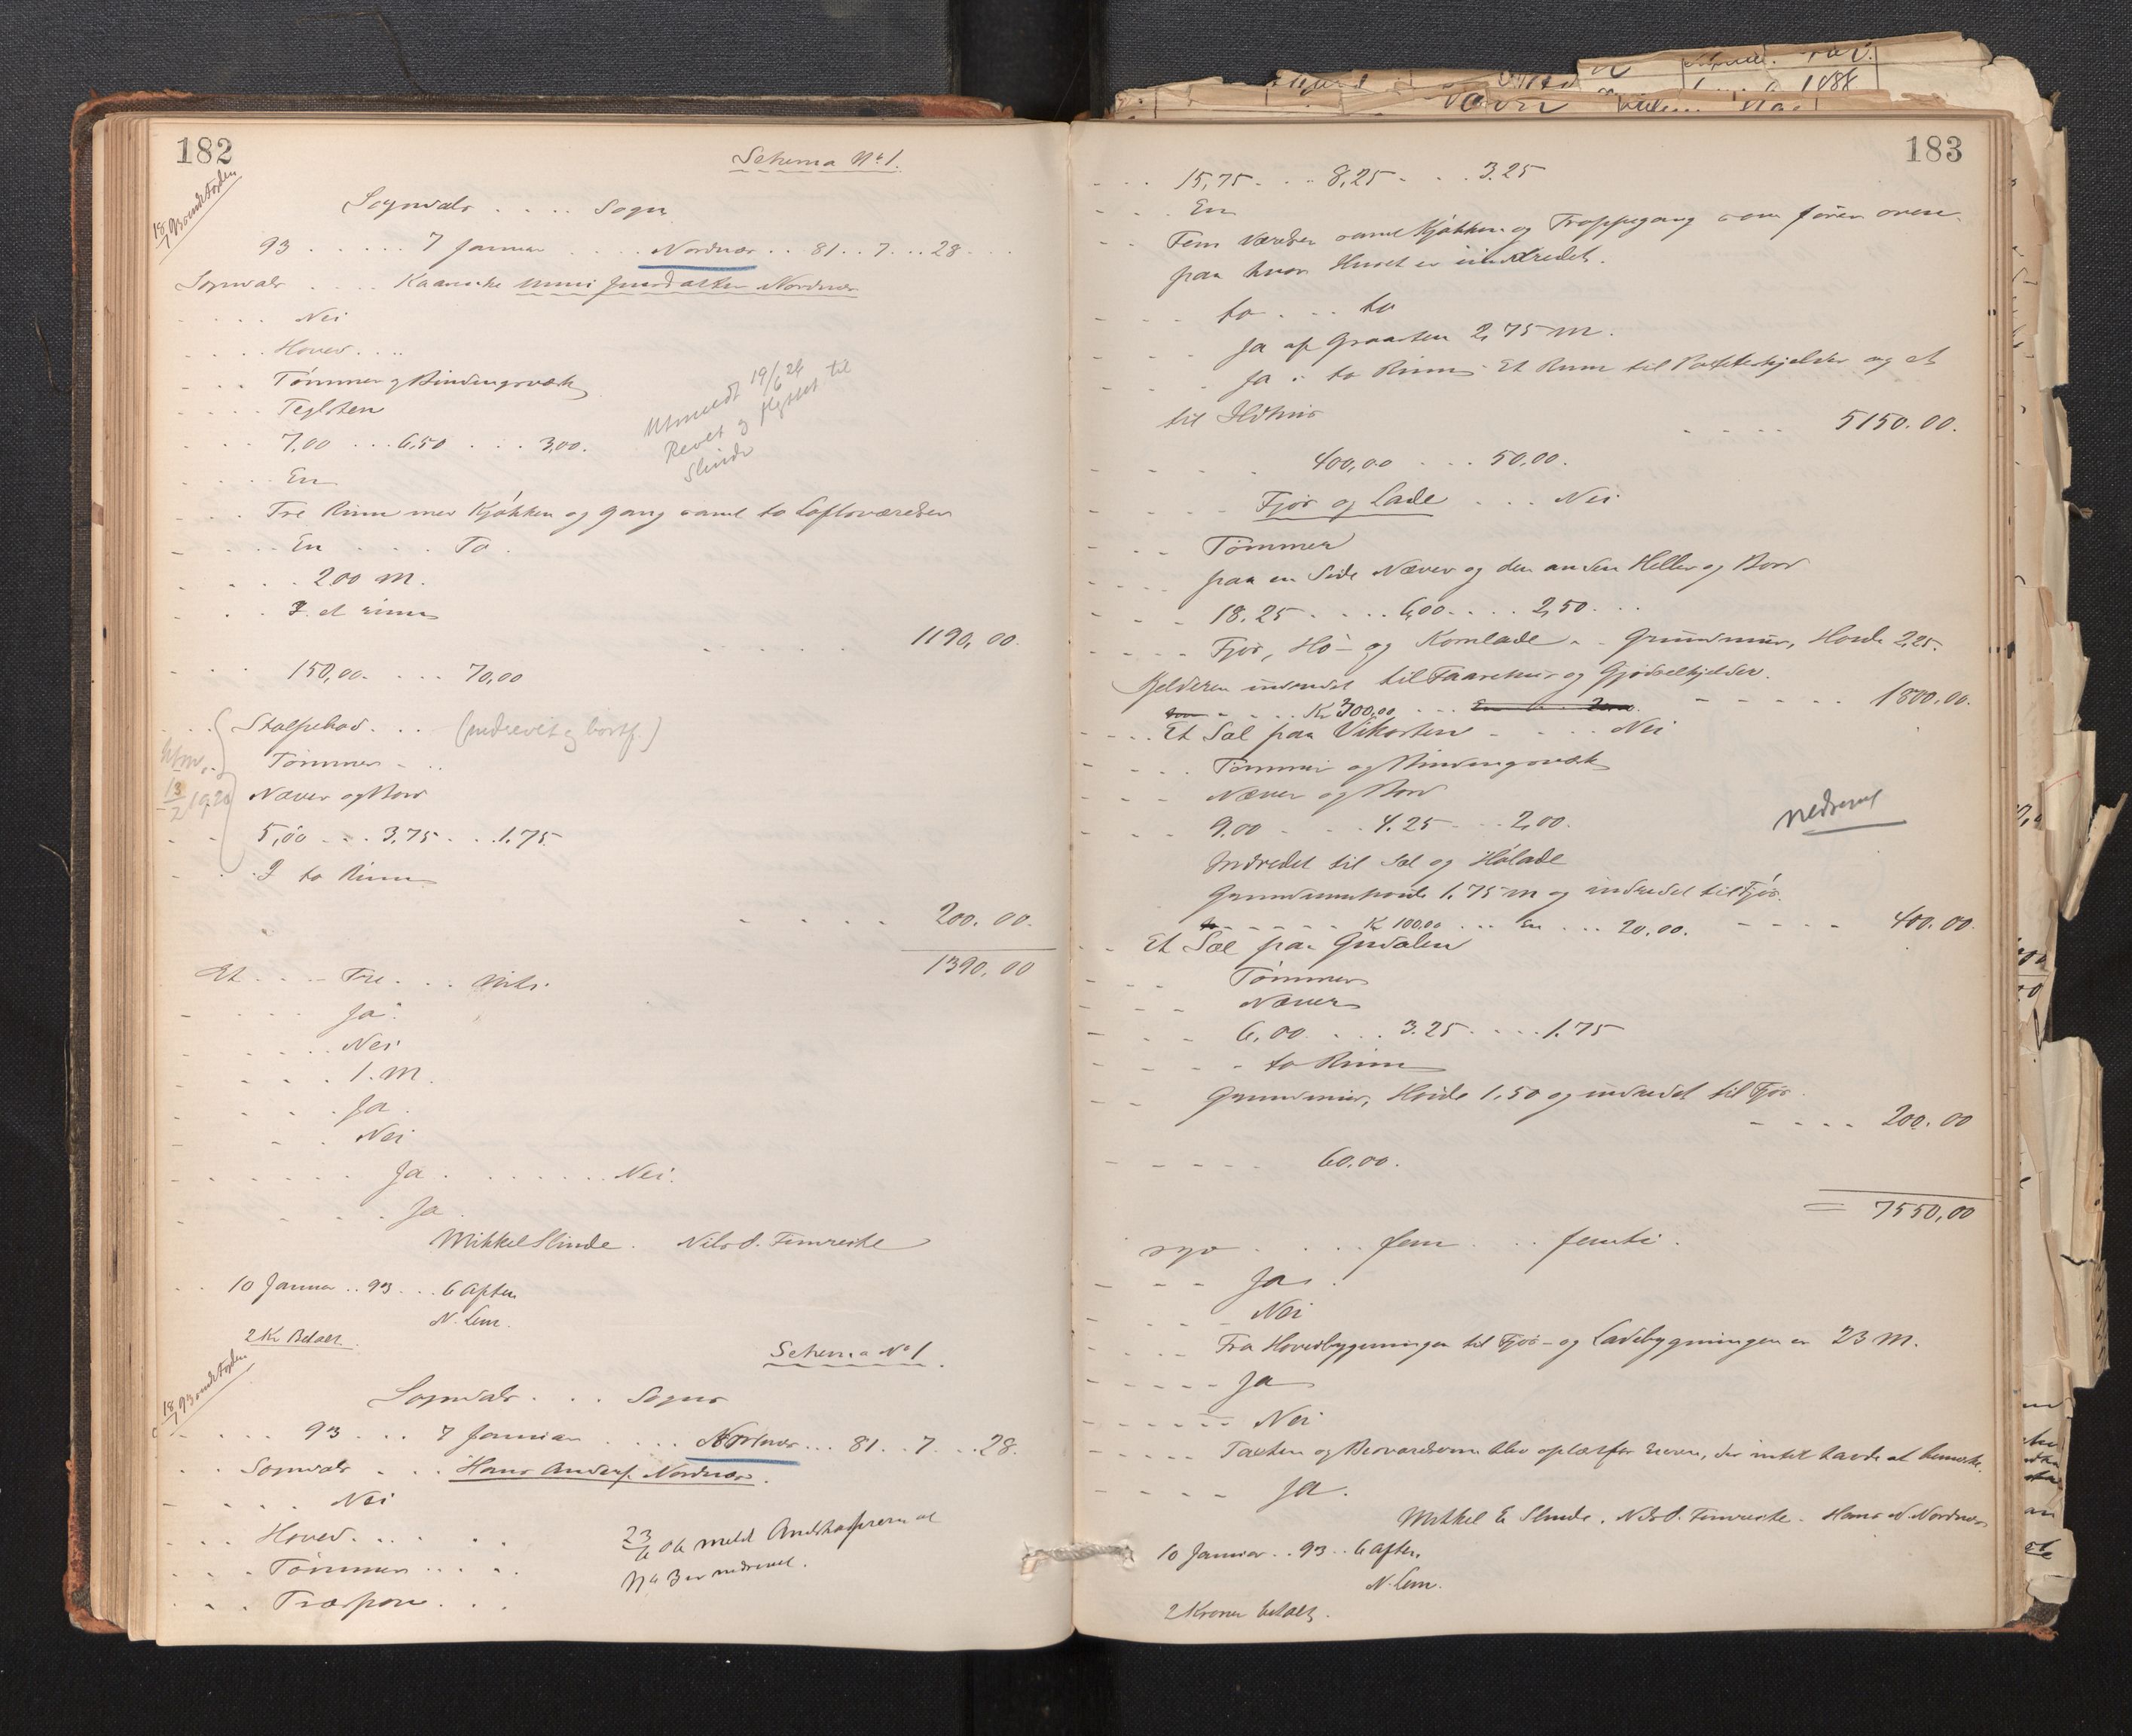 182
Schema No 1.
Sogndals . . . . Sogn
93 . . . . . 7 Januar . . . . Nordnæs . . 81 . . 7 . . . 28 . . .
Sogndals . . . . Kaarenke Unni Nordnæs
. . . . Nei
. . . . Hoved . . . .
. . . Tømmer og Bindingsværk
. . . . Teglsten
. . . 7,00 . . . 6,50 . . . . 3,00.
Utmeldt 19/6 24
Revet og flyttet til
Slinde
. . . . En
. . . Tre Rum med Kjøkken og Gang samt to Loftsværelser
. . . En . . . . To.
. . . . 2,00 M.
. . . I et rum
. . . . . . 1190,00.
. . . 150,00. . . . 70,00
. . . Stolpebod . . . (nedrevet og bortf.)
Utm.
13/2 1920
Tømmer . . .
Næver og Bord
5,00 . . . 3,75 . . 1,75.
I to Rum
. . . . . 200.00.
1390,00
Et . . . . Tre . . . Niti.
. . . . . Ja.
. . . . . Nei
. . . . 1. M.
. . . . Ja.
. . . Nei
. . . . . . Ja . . . . . . . Nei.
. . . . . Ja.
Mikkel Slinde. Nils O. Fimreite
. . 10 Januar . . 93 . . . 6 Aften
N. Lem.
2 Kr Betalt.
Schema No 1.
Sogndals . . . Sogns
. . . . 93 . . . 7 Januar . . . . Nordnæs . . . 81 . . 7 . . . 28.
. . Sogndals . . . Hans Anders. Nordnæs.
. . . . . Nei
. . . Hoved . . . . .
. . . Tømmer . . . . .
. . . Træspon . . .
23/6 06 meldt at
No 3 er nedrevet.
183
. . . 15,75 . . . 8,25 . . . 3.25
. . . En
. . Fem Værelser samt Kjøkken og Trappegang som fører ovenpaa
paa hvor Huset er uindredet.
. . . to . . . to
. . . Ja af Graasten 2,75 M.
. . . Ja i to Rum. Et Rum til Potetkjelder og et
til Ildhus
. . . . 5150.00.
. . . . . 400,00 . . . 50,00.
. . . . Fjøs og Lade . . . Nei
. . . Tømmer
. . . paa en Side Næver og den anden Heller og Bord
. . . 18.25 . . . . 6,00 . . . . 2,50 . . .
. . . . Fjøs, Hø- og Kornlade . . Grundmur, Høide 2,25.
Kjelderen indredet til Faarehus og Gjødselkjelder.
. . . . Kr 300,00 . . . . . . . . 1800.00.
. . . . Et Sæl paa Vikasten . . . . . Nei
. . . . Tømmer og Bindingsværk
. . . Næver og Bord
. . . 9.00 . . . . 4.25 . . . 2,00.
nedrevet
Indredet til Sæl og Hølade
Grundmurshøide 1.75 M og indredet til Fjøs.
. . . . . . Kr 100,00 . . . En . . . 20,00. . . . . 400.00.
. . Et Sæl paa Gudalen
. . . Tømmer
. . . Næver
. . . 6,00 . . . . 3.25 . . . . 1.75
. . . . to Rum
. . Grundmur, Høide 1.50 og indredet til Fjøs.
. . . . 200.00
. . . . . 60,00.
= 7550,00
syv . . . . . fem . . . femti.
. . . Ja.
. . . . Nei
. . . . Fra Hovedbygningen til Fjøs- og Ladebygningen er 23 M.
. . . . . Ja
. . . . . Nei
. . . . Taxten og Besvarelserne blev oplæst for Eieren, der intet havde at bemerke.
. . . . Ja.
Mikkel E Slinde. Nils O. Fimreite. Hans A. Nordnæs
10 Januar . . 93 . . 6 Aften.
N. Lem.
2 Kroner betalt.